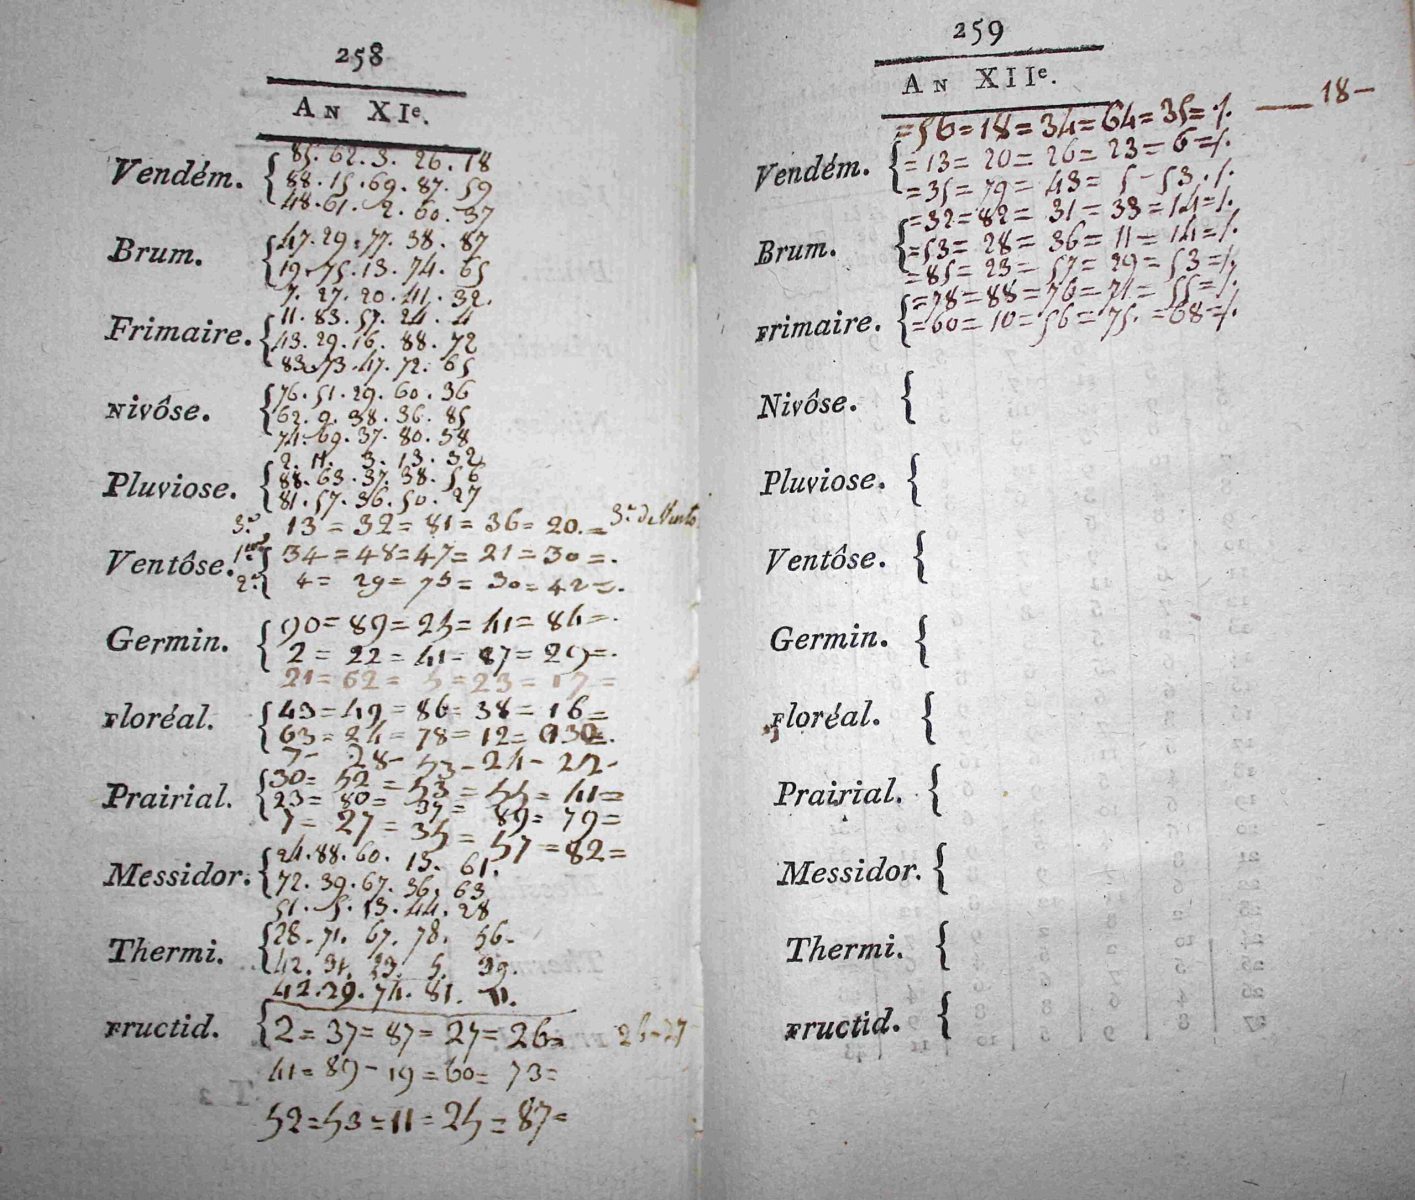 258
AN XIe.
85. 62. 3. 26. 18
Vendém. { 88. 15. 69. 87. 59
48. 61. 2. 60. 37
47. 29. 77. 38. 87
Brum. { 19. 75. 13. 74. 65
7. 27. 20. 41. 32.
11. 83. 57. 24. 4
Frimaire. { 43. 29. 16. 88. 72
83. 73. 47. 72. 65
76. 51. 29. 60. 36
Nivôse. { 62. 9. 38. 36. 85
74. 69. 37. 80. 58
2. 11. 3. 13. 32
Pluviose. { 88. 63. 37. 38. 56
81. 57. 36. 50. 27
3.e 13 = 32 = 81 = 36 = 20. = 3.e de Vento
Ventôse. 1ere { 34 = 48 = 47 = 21 = 30 = .
2.e 4 = 29 = 75 = 30 = 42 = .
90 = 89 = 25 = 41 = 84 = .
Germin. { 2 = 22 = 41 = 87 = 29 = .
21 = 62 = 5 = 23 = 17 =
Floréal. { 43 = 49 = 86 = 38 = 16 =
63 = 24 = 78 = 12 = 30 = .
7 - 28 - 53 - 24 - 22 -
30 = 52 = 53 = 55 = 41 =
Prairial. { 23 = 80 = 37 = 89 = 79 =
7 = 27 = 35 = 57 = 82 =
24. 88. 60. 15. 61.
Messidor. { 72. 39. 67. 36. 63
51. 5. 13. 44. 28
Thermi. { 28. 71. 67. 78. 56.
42. 31. 23. 5. 39.
42. 29. 74. 81. 11.
Fructid. { 2 = 37 = 87 = 27 = 26 = 26 - 27
41 = 89 - 19 = 60 = 73 =
52 = 53 = 11 = 25 = 87 =
259
AN XIIe.
= 56 = 18 = 34 = 64 = 35 = /. — 18 -
Vendém. { = 13 = 20 = 26 = 23 = 6 = /.
= 35 = 79 = 43 = 5 - 53. /.
= 32 = 82 = 31 = 33 = 14 = /.
Brum. { = 53 = 28 = 36 = 11 = 14 = /.
= 85 = 23 = 57 = 29 = 53 = /.
Frimaire. { = 78 = 88 = 76 = 71 = 55 = /.
= 60 = 10 = 56 = 75. = 68 = /.
Nivôse. {
Pluviose. {
Ventôse. {
Germin. {
Floréal. {
Prairial. {
Messidor. {
Thermi. {
Fructid. {